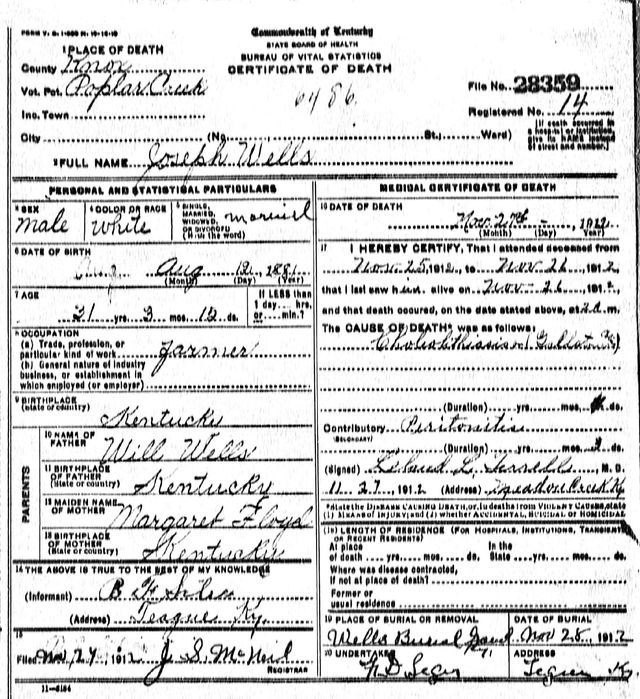 FORM V. S. 1-
Commonwealth of Kentucky
STATE BOARD OF HEALTH
BUREAU OF VITAL STATISTICS
CERTIFICATE OF DEATH
1 PLACE OF DEATH
County Knox
Vot. Pct. Poplar Creek
Inc. Town
City (No. St.; Ward)
6486
File No. 28359
Registered No. 14
[If death occurred in a hospital or institution, give its NAME instead of street and number.]
2 FULL NAME Joseph Wells
PERSONAL AND STATISTICAL PARTICULARS
3 SEX male
4 COLOR OR RACE White
5 SINGLE, MARRIED, WIDOWED OR DIVORCED (Write the word) married
6 DATE OF BIRTH
Aug 12, 1881
(Month) (Day) (Year)
7 AGE
31 yrs. 3 mos. 15 ds.
If LESS than 1 day ... hrs. or ... min.?
8 OCCUPATION
(a) Trade, profession, or particular kind of work farmer
(b) General nature of industry business, or establishment in which employed (or employer)
9 BIRTHPLACE
(State or country) Kentucky
PARENTS
10 NAME OF FATHER Will Wells
11 BIRTHPLACE OF FATHER (State or country) Kentucky
12 MAIDEN NAME OF MOTHER Margaret Floyd
13 BIRTHPLACE OF MOTHER (State or country) Kentucky
14 THE ABOVE IS TRUE TO THE BEST OF MY KNOWLEDGE
(Informant) B F
(Address) Teague Ky.
15
Filed Nov 27, 1912 J. S. McNeil
REGISTRAR
11-5184
MEDICAL CERTIFICATE OF DEATH
16 DATE OF DEATH
Nov. 27th, 1912
(Month) (Day) (Year)
17 I HEREBY CERTIFY, That I attended deceased from
Nov. 25, 1912, to Nov 26, 1912,
that I last saw him alive on Nov-26, 1912,
and that death occured, on the date stated above, at 2 a.m.
The CAUSE OF DEATH* was as follows:
Cholelithiasis
(Duration) yrs. mos. ds.
Contributory Peritonitis
(SECONDARY)
(Duration) yrs. mos. ds.
(Signed) Leland L. M. D.
11-27, 1912 (Address) Meadow Creek Ky
*State the DISEASE CAUSING DEATH, or, in deaths from VIOLENT CAUSES, state (1) MEANS OF INJURY; and (2) whether ACCIDENTAL, SUICIDAL or HOMICIDAL
(18) LENGTH OF RESIDENCE (FOR HOSPITALS, INSTITUTIONS, TRANSIENTS OR RECENT RESIDENTS)
At place of death yrs. mos. ds. In the State yrs. mos. ds.
Where was disease contracted,
If not at place of death?
Former or
usual residence
19 PLACE OF BURIAL OR REMOVAL
Wells Burial
DATE OF BURIAL
Nov 28, 1912
20 UNDERTAKER
ADDRESS